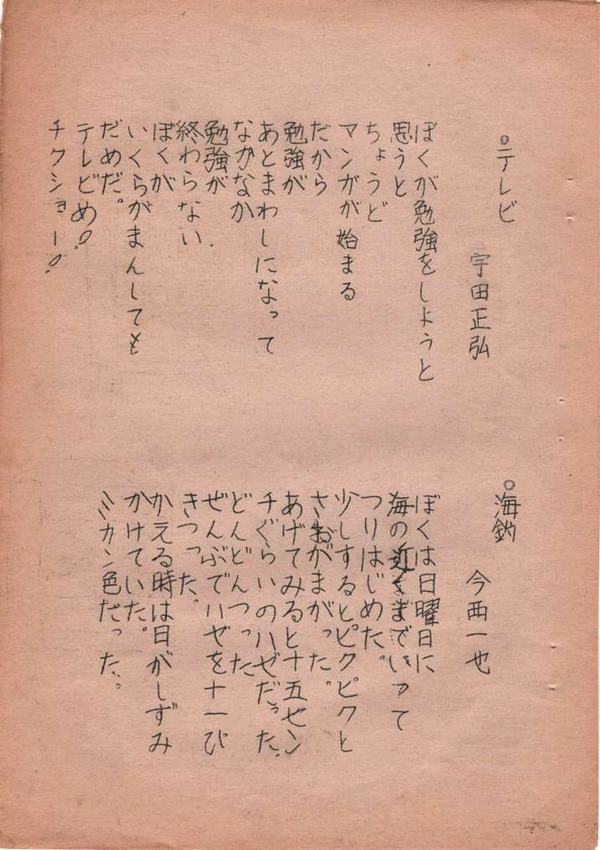 ○テレビ
宇田正弘
ぼくが勉強をしようと
思うと
ちょうど
マンガが始まる
だから
勉強が
あとまわしになって
なかなか
勉強が
終わらない
ぼくが
いくらがまんしても
だめだ。
テレビめ!
チクショー!
○海釣
今西一也
ぼくは日曜日に
海の近くまでいって
つりはじめた。
少しするとピクピクと
さおがまがった。
あげてみると十五セン
チぐらいのハゼだった。
どんどんつった
ぜんぶでハゼを十一ぴ
きつった。
かえる時は日がしずみ
かけていた。
ミカン色だった。